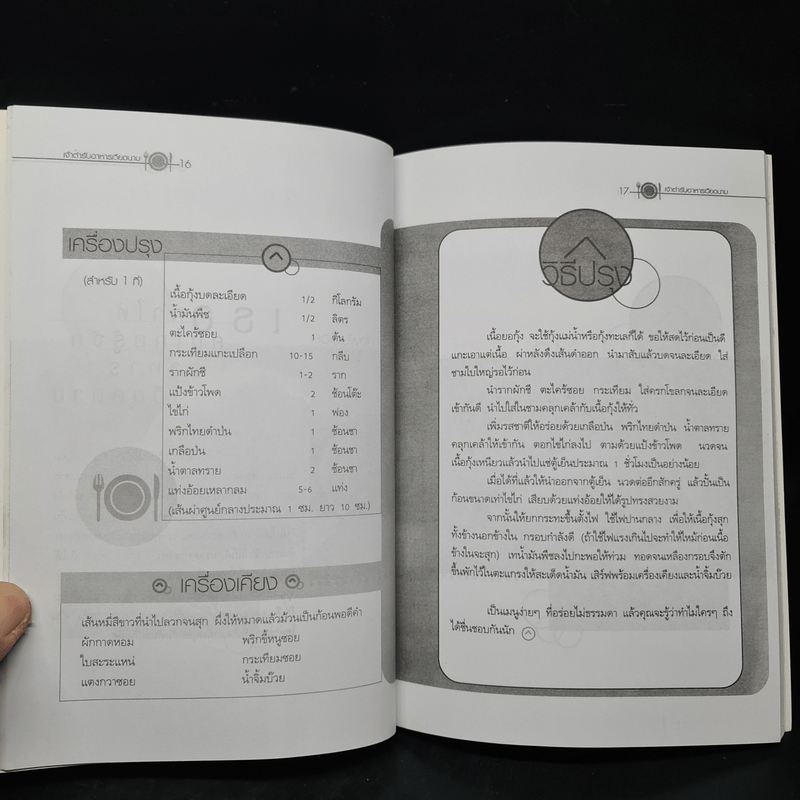 เจ้าตำรับอาหารเวียดนาม 16
เครื่องปรุง
(สำหรับ 1 ที่)
เนื้อกุ้งบดละเอียด 1/2 กิโลกรัม
น้ำมันพืช 1/2 ลิตร
ตะไคร้ซอย 1 ต้น
กระเทียมแกะเปลือก 10-15 กลีบ
รากผักชี 1-2 ราก
แป้งข้าวโพด 2 ช้อนโต๊ะ
ไข่ไก่ 1 ฟอง
พริกไทยดำป่น 1 ช้อนชา
เกลือป่น 1 ช้อนชา
น้ำตาลทราย 2 ช้อนชา
แท่งอ้อยเหลากลม 5-6 แท่ง
(เส้นผ่าศูนย์กลางประมาณ 1 ซม. ยาว 10 ซม.)
เครื่องเคียง
เส้นหมี่สีขาวที่นำไปลวกจนสุก ผึ่งให้หมาดแล้วม้วนเป็นก้อนพอดีคำ
ผักกาดหอม พริกขี้หนูซอย
ใบสะระแหน่ กระเทียมซอย
แตงกวาซอย น้ำจิ้มบ๊วย
17 เจ้าตำรับอาหารเวียดนาม
วิธีปรุง
เนื้อยอกุ้ง จะใช้กุ้งแม่น้ำหรือกุ้งทะเลก็ได้ ขอให้สดไว้ก่อนเป็นดี
แกะเอาแต่เนื้อ ผ่าหลังดึงเส้นดำออก นำมาสับแล้วบดจนละเอียด ใส่
ชามใบใหญ่รอไว้ก่อน
นำรากผักชี ตะไคร้ซอย กระเทียม ใส่ครกโขลกจนละเอียด
เข้ากันดี นำไปใส่ในชามคลุกเคล้ากับเนื้อกุ้งให้ทั่ว
เพิ่มรสชาติให้อร่อยด้วยเกลือป่น พริกไทยดำป่น น้ำตาลทราย
คลุกเคล้าให้เข้ากัน ตอกไข่ไก่ลงไป ตามด้วยแป้งข้าวโพด นวดจน
เนื้อกุ้งเหนียวแล้วนำไปแช่ตู้เย็นประมาณ 1 ชั่วโมงเป็นอย่างน้อย
เมื่อได้ที่แล้วให้นำออกจากตู้เย็น นวดต่ออีกสักครู่ แล้วปั้นเป็น
ก้อนขนาดเท่าไข่ไก่ เสียบด้วยแท่งอ้อยให้ได้รูปทรงสวยงาม
จากนั้นให้ยกกระทะขึ้นตั้งไฟ ใช้ไฟปานกลาง เพื่อให้เนื้อกุ้งสุก
ทั้งข้างนอกข้างใน กรอบกำลังดี (ถ้าใช้ไฟแรงเกินไปจะทำให้ไหม้ก่อนเนื้อ
ข้างในจะสุก) เทน้ำมันพืชลงไปกะพอให้ท่วม ทอดจนเหลืองกรอบจึงตัก
ขึ้นพักไว้ในตะแกรงให้สะเด็ดน้ำมัน เสิร์ฟพร้อมเครื่องเคียงและน้ำจิ้มบ๊วย
เป็นเมนูง่ายๆ ที่อร่อยไม่ธรรมดา แล้วคุณจะรู้ว่าทำไมใครๆ ถึง
ได้ชื่นชอบกันนัก